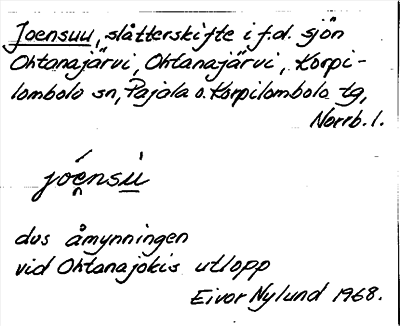 Joensuu, slåtterskifte i f.d. sjön
Ohtanajärvi, Ohtanajärvi, Korpi-
lombolo sn, Pajala o. Korpilombolo tg,
Norrb. l.
jóe̮nsù̲
dvs åmynningen
vid Ohtanajokis utlopp
Eivor Nylund 1968.